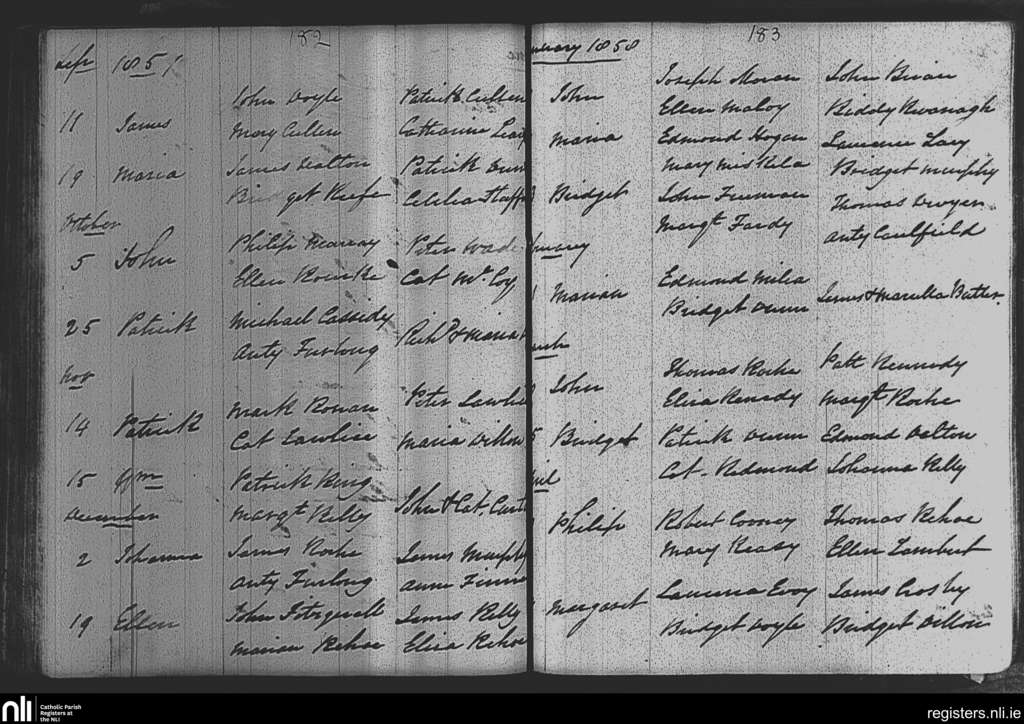 182
Sepr 1857
John Doyle Patrick Cullen
11 James Mary Cullen Catharine Leary
19 Maria James Dalton Patrick
Bridget Keefe Cecelia
October
5 John Philip Peter Wade
Ellen Rourke Cat McCoy
25 Patrick Michael Cassidy
Anty Furlong Richd & Maria
Nov
14 Patrick Mark Ronan Peter
Cat Lawlise Maria Dillon
15 Wm Patrick King
Margt Kelly John & Cat.
December
2 Johanna James Roche James Murphy
Anty Furlong Anne
19 Ellen John Fitzgerald James Kelly
Marian Kehoe Eliza Kehoe
183
1858
John Joseph Moran John Brian
Ellen Maloy Biddy Kavanagh
Maria Edmond Hogan Laurence Lacy
Mary Bridget Murphy
Bridget John Thomas Dwyer
Margt Fardy Anty Caulfield
Marian Edmond
Bridget Dunn James & Marcella Butler
John Thomas Roche Patt Kennedy
Eliza Kenedy Margt Roche
Bridget Patrick Dunn Edmond Dalton
Cat. Redmond Johanna Kelly
Philip Robert Cooney Thomas Kehoe
Mary Ellen Lambert
Margaret Evoy James Crosby
Bridget Doyle Bridget Dillon
nli
Catholic Parish
Registers at
the NLI
registers.nli.ie